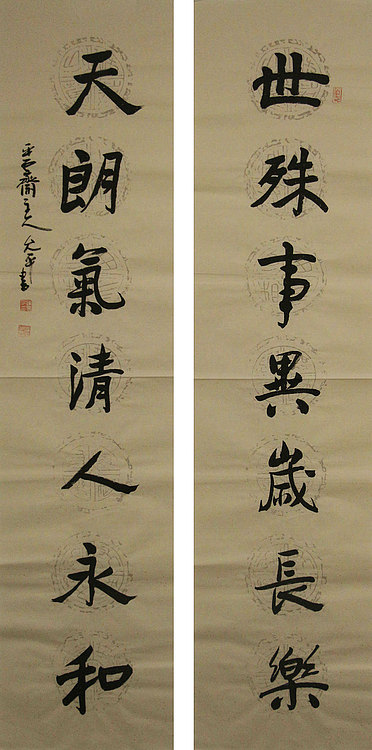 世殊事異歲長樂
天朗氣清人永和
齋主人
書